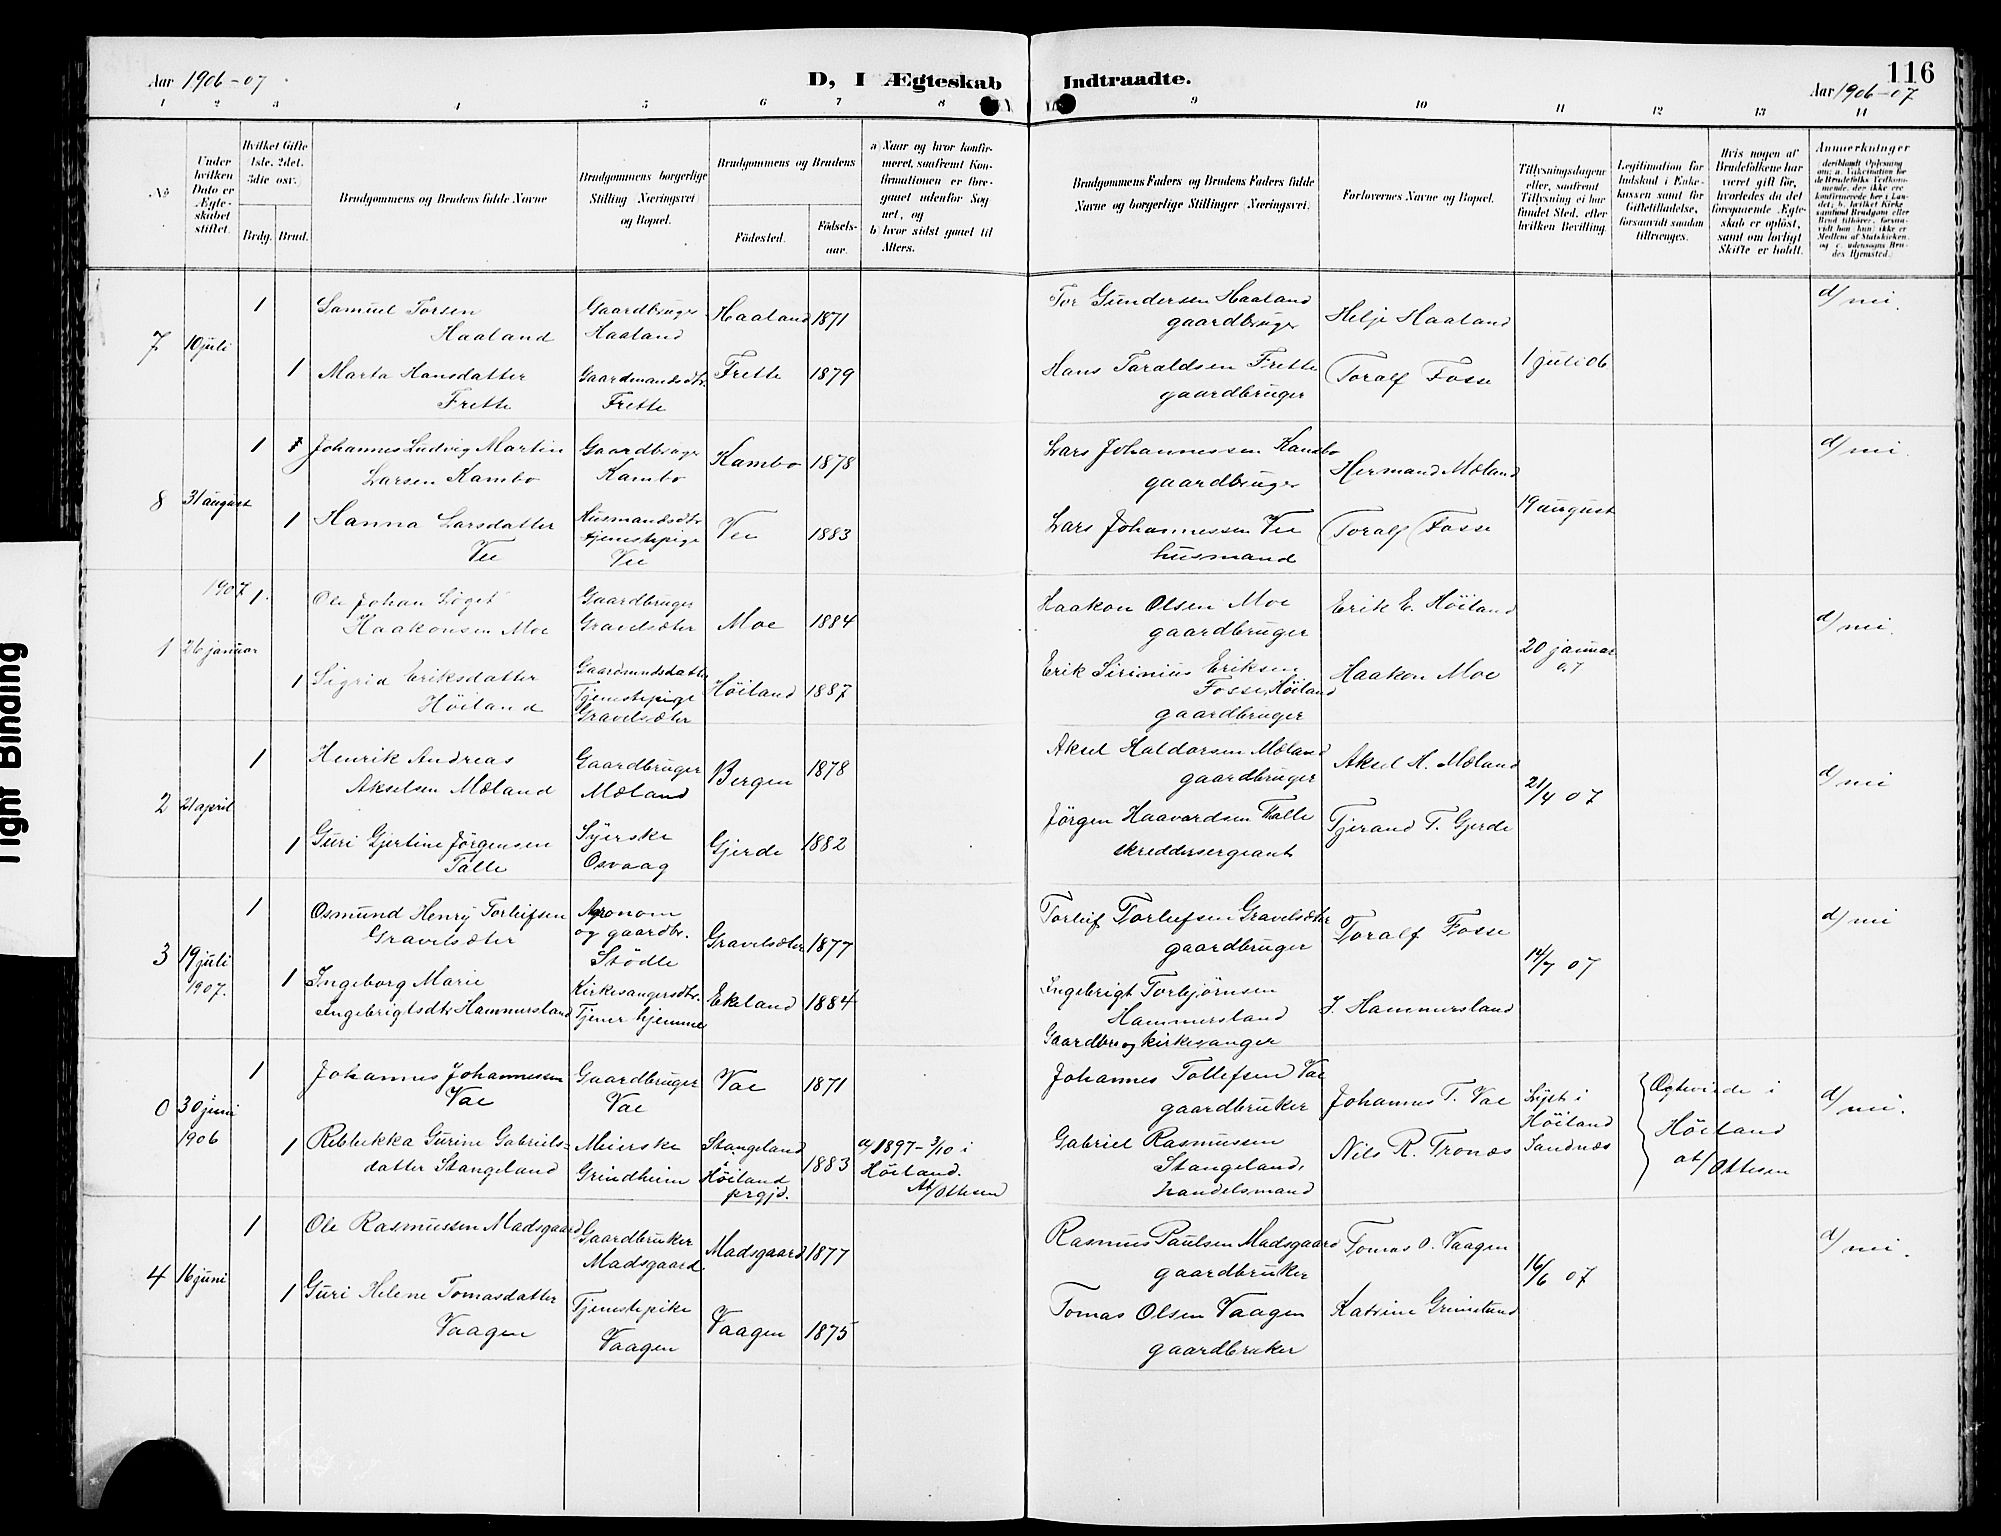 116
Aar 1906-07
D, I Ægteskab Indtraadte.
Aar 1906-07
1 2 3 4 5 6 7 8 9 10 11 12 13 14
No
Under hvilken Dato er Ægteskabet stiftet.
Hvilket Gifte 1ste, 2det, 3die osv.)
Brdg. Brud.
Brudgommens og Brudens fulde Navne
Brudgommens borgerlige Stilling (Næringsvei) og Bopæl.
Brudgommens og Brudens
Födested. Födselsaar.
a Naar og hvor konfirmeret, saafremt Konfirmationen er foregaaet udenfor Sognet, og
b hvor sidst gaaet til Alters.
Brudgommens Faders og Brudens Faders fulde Navne og borgerlige Stillinger (Næringsvei.
Forlovernes Navne og Bopæl.
Tillysningsdagene eller, saafremt Tillysning ei har fundet Sted, efter hvilken Bevilling.
Legitimation for Indskud i Enkekassen samt for Giftetilladelse, forsaavidt saadan tiltrænges.
Hvis nogen af Brudefolkene har været gift før, hvorledes da det foregaaende Ægteskab er oplöst, samt om lovligt Skifte er holdt.
Anmærkninger
7 10 juli
1 Samuel Torsen Haaland
Gaardbruger Haaland
Haaland 1871
Tor Gundersen Haaland gaardbruger
Helje Haaland
1 juli 06
d/ nei.
1 Marta Hansdatter Frette
Gaardmandsdtr. Frette
Frette 1879
Hans Taraldsen Frette gaardbruger
Toralf Fosse
8 31 august
1 Johannes Ludvig Martin Larsen Kambo
Gaardbruger Kambo
Kambo 1878
Lars Johannessen Kambo gaardbruger
Hermand Mæland
19 august
d/ nei.
1 Hanna Larsdatter Vee
Husmandsdtr tjenestepige Vee
Vee 1883
Lars Johannessen Vee husmand
Toralf Fosse
1907
1 26 januar
1. Ole Johan Haakonsen Moe
Gaardbruger Gravelsæter
Moe 1884
Haakon Olsen Moe gaardbruger
Erik E. Höiland
20 januar 07
d/ nei.
1 Sigrid Eriksdatter Höiland
Gaardmandsdatter Tjenestepige Gravelsæter
Höiland 1887
Erik Sirinius Eriksen Fosse, Höiland gaardbruger
Haakon Moe
2 21 april
1 Henrik Andreas Akselsen Mæland
Gaardbruger Mæland
Bergen 1878
Aksel Haldorsen Mæland gaardbruger
Aksel H. Mæland
21/4 07
d/ nei
1 Guri Gjertine Jörgensen Talle
Syerske Osvaag
Gjerde 1882
Jörgen Haavardsen Talle skreddersergeant
Tjerand T. Gjerde
3 19 juli 1907.
1 Osmund Henry Torleifsen Gravelsæter
Agronom og gaardbr. Stödle
Gravelsæter 1877
Torleif Torleifsen Gravelsæter gaardbruger
Toralf Fosse
14/7 07
d/ nei
1 Ingeborg Marie Ingebrigtsdtr Hammersland
Kirkesangersdtr. Tjener hjemme
Ekeland 1884
Ingebrigt Torbjørnsen Hammersland Gaardbr og kirkesanger
I. Hammersland
0 30 juni 1906
1 Johannes Johannessen Vae
Gaardbruger Vae
Vae 1871
Johannes Tollefsen Vae gaardbruker
Johannes T. Vae
Lyst i Höiland Sandnæs
Ogteviede i Höiland at/ Ottesen
d/ nei.
1 Rebekka Gurine Gabrielsdatter Stangeland
Meierske Grindheim
Stangeland i Höiland prgjd. 1883
a/ 1897-3/10 i Höiland. At/ Ottesen
Gabriel Rasmussen Stangeland, handelsmand
Nils R. Tronæs
4 16 juni
1 Ole Rasmussen Madsgaard
Gaardbruker Madsgaard.
Madsgaard 1877
Rasmus Paulsen Madsgaard gaardbruker
Tomas O. Vaagen
16/6 07
d/ nei.
1 Guri Helene Tomasdatter Vaagen
Tjenestepike Vaagen
Vaagen 1875
Tomas Olsen Vaagen gaardbruker
Katrine Grimstund
Tight Binding